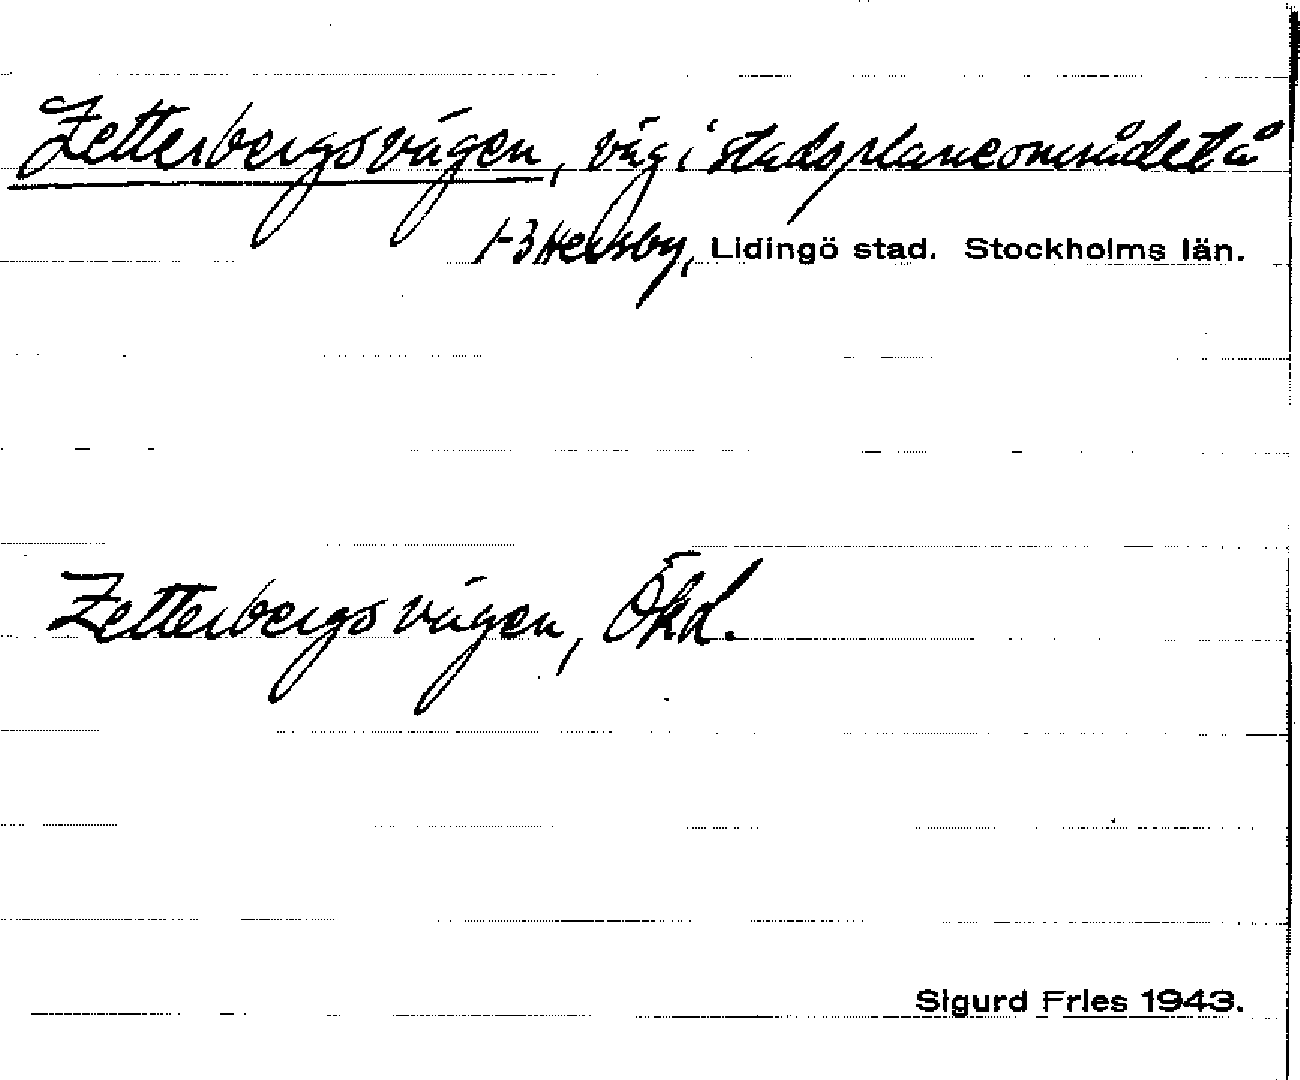 Zetterbergsvägen, väg i stadsplaneområdet å
1-3 Hersby, Lidingö stad. Stockholms län.
Zetterbergsvägen, Ökd.
Sigurd Fries 1943.